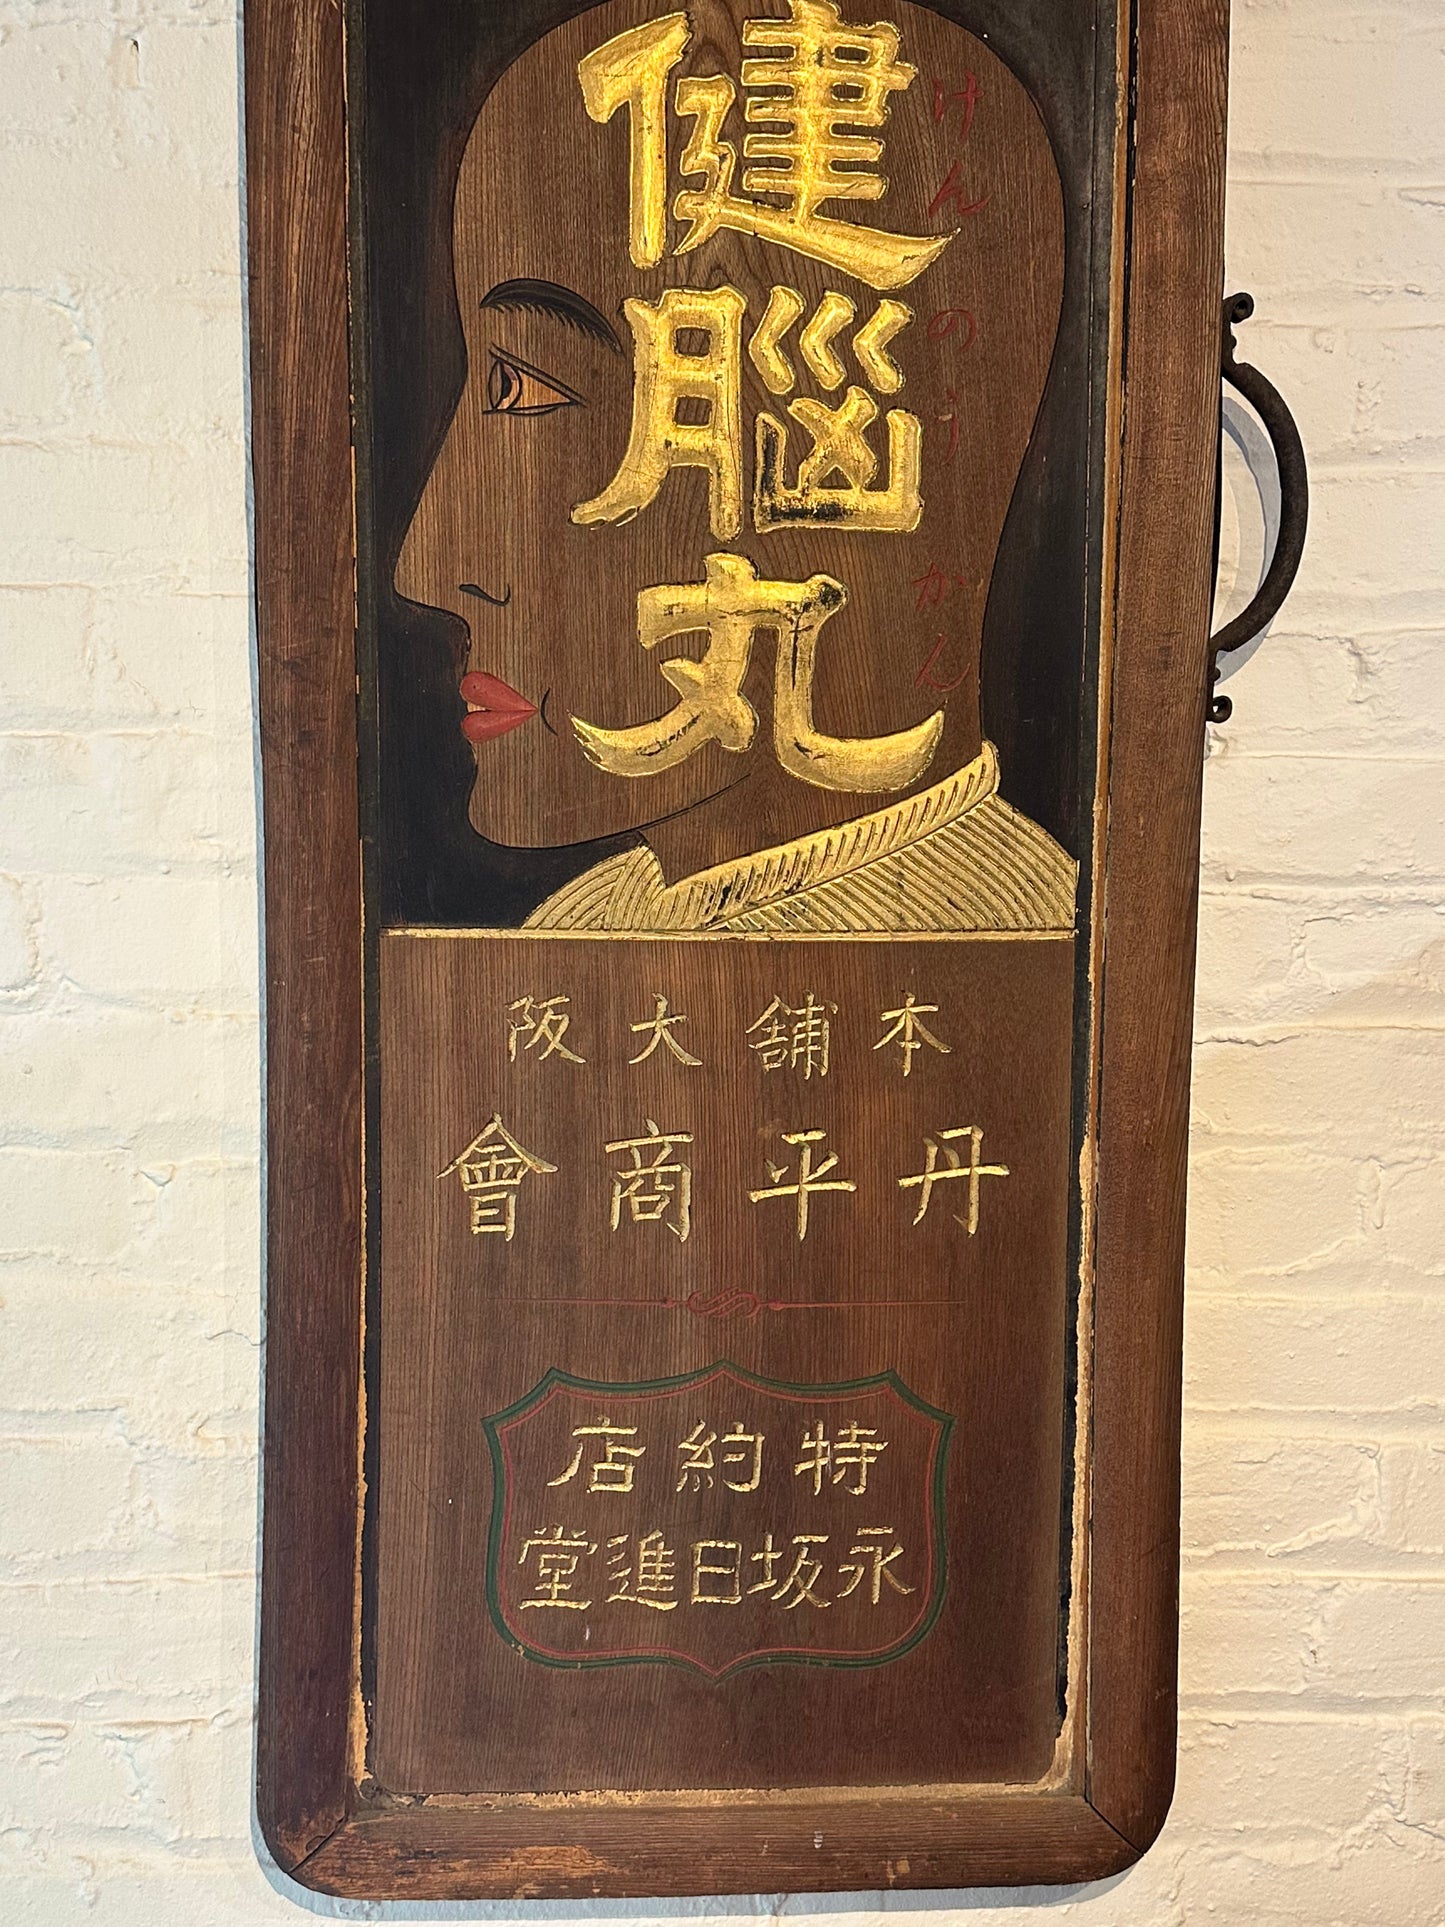 健腦丸
けんのうかん
本舗大阪
丹平商會
特約店
永坂日進堂